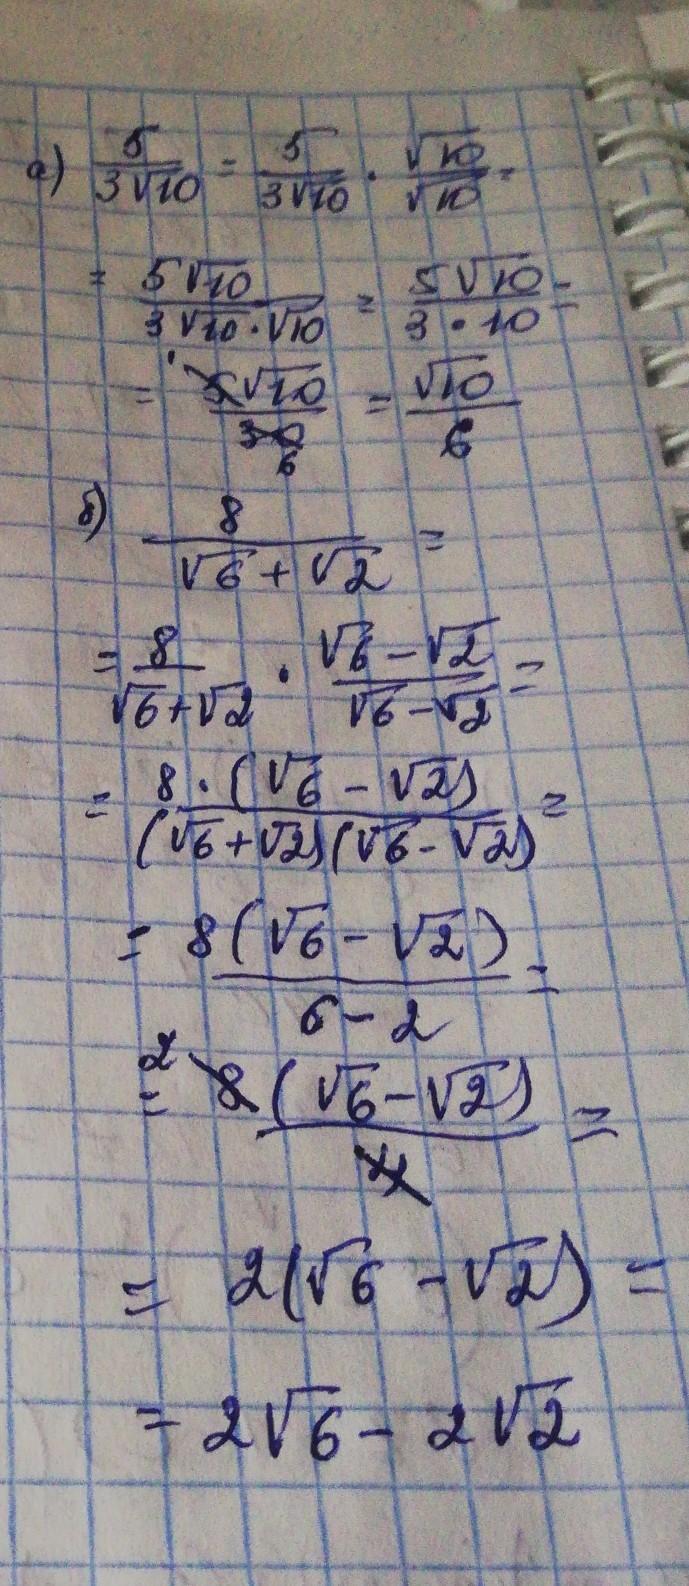 а) 5/(3√10) = 5/(3√10) · √10/√10 =
= 5√10/(3√10·√10) = 5√10/(3·10) =
= 5√10/30 = √10/6
б) 8/(√6+√2) =
= 8/(√6+√2) · (√6-√2)/(√6-√2) =
= 8·(√6-√2)/((√6+√2)(√6-√2)) =
= 8(√6-√2)/(6-2) =
= 8(√6-√2)/4 =
= 2(√6-√2) =
= 2√6-2√2